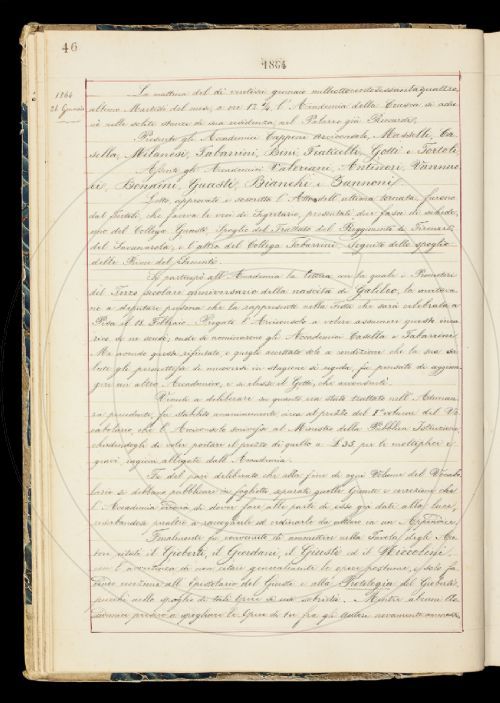 46
1864
1864
26 Gennaio
La mattina del dì ventisei gennaio milleottocentosessantaquattro,
ultimo Martedì del mese, a ore 12 1/4, l'Accademia della Crusca si adu-
nò nelle solite stanze di sua residenza, nel Palazzo già Riccardi.
Presenti gli Accademici Capponi Arciconsolo, Masselli, Ca-
sella, Milanesi, Tabarrini, Bini, Fraticelli, Gotti e Tortoli.
Assenti gli Accademici Valeriani, Antinori, Vannuc-
ci, Bonaini, Guasti, Bianchi e Zannoni.
Letto approvato e sottoscritto l'Atto dell'ultima tornata, furono
dal Tortoli, che faceva le veci di Segretario, presentati due fascî di schede,
uno del Collega Guasti, Spoglio del Trattato del Reggimento di Firenze
del Savonarola, e l'altro del Collega Tabarrini, Seguito dello spoglio
delle Prose del
Si partecipò all'Accademia la lettera con la quale i Promotori
del Terzo secolare anniversario della nascita di Galileo, la invitava-
no a deputare persona che la rappresenti nella Festa che sarà celebrata a
Pisa il 18 Febbraio. Pregato l'Arciconsolo a volere assumere questo inca-
rico, se ne scusò, onde si nominarono gli Accademici Casella e Tabarrini.
Ma avendo questi rifiutato, e quegli accettato solo a condizione che la sua sa-
lute gli permettesse di muoversi in stagione sì rigida, fu pensato di aggiun-
gere un altro Accademico, e si chiese il Gotti, che acconsentì.
Venuti a deliberare su quanto era stato trattato nell'Adunan-
za precedente, fu stabilito unanimemente circa al prezzo del 1° volume del Vo-
cabolario, che l'Arciconsolo scrivesse al Ministro della Pubblica Istruzione,
chiedendogli di voler portare il prezzo di quello a L. 35 per le molteplici e
gravi ragioni allegate dalla Accademia.
Fu del pari deliberato che alla fine di ogni Volume del Vocabo-
lario si debbano pubblicare in foglietto separato quelle Giunte e correzioni che
l'Accademia crederà di dover fare alle parti di esso già date alla luce,
riserbandosi inoltre a raccoglierle ed ordinarle da ultimo in un Appendice.
Finalmente fu convenuto di ammettere nella Tavola degli Au-
tori citati il Gioberti, il Giordani, il Giusti ed il Niccolini,
con l'avvertenza di non citare generalmente le opere postume, e solo fa-
cendo eccezione all'Epistolario del Giusti e alla Protologia del Gioberti,
perchè nello spoglio di tali opere si usi sobrietà. Mentre alcuni Ac-
cademici presero a spogliare le Opere di tre fra gli Autori novamente ammessi,